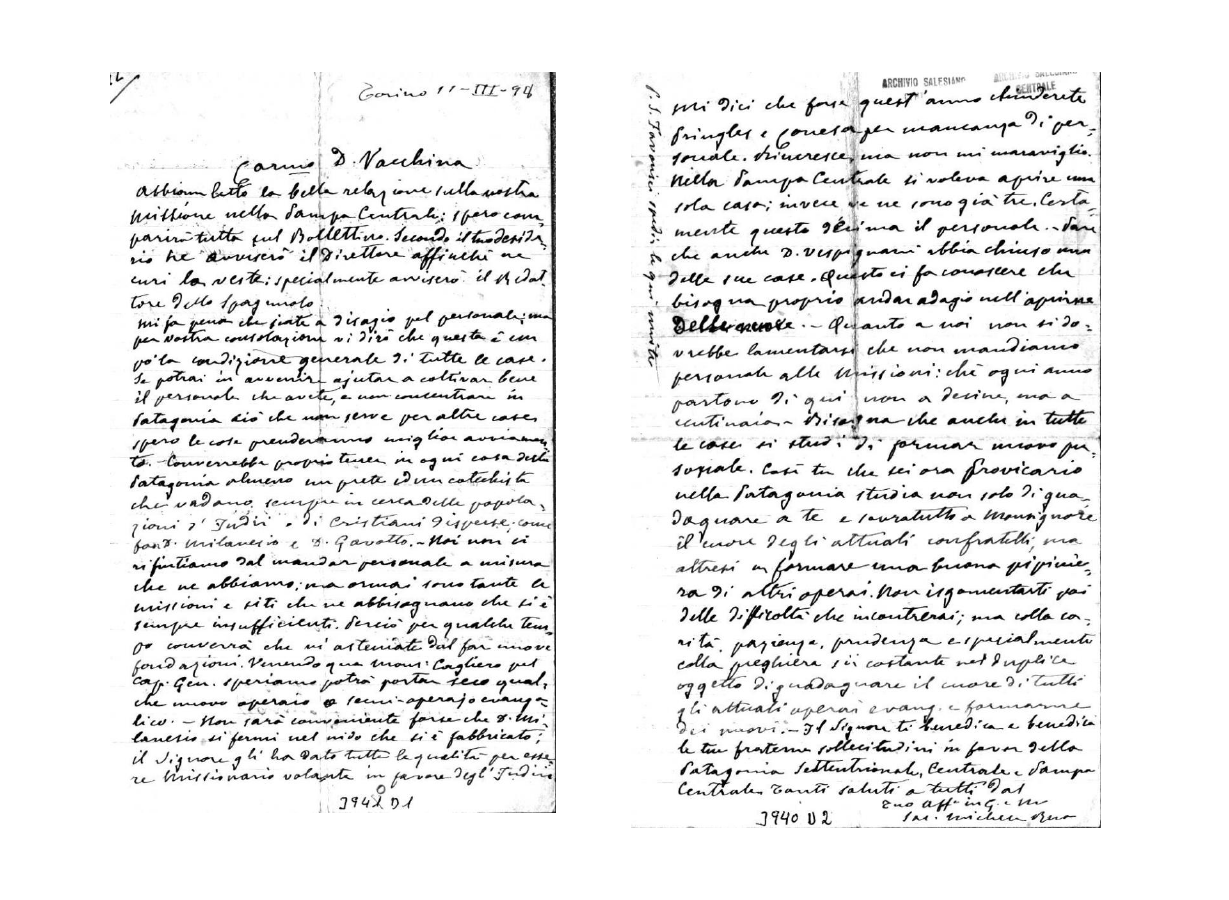 Torino 11-III-98
Carmo D. Vacchina
Abbiam letto la bella relazione sulla vostra
Missione nella Pampa Centrale; spero com
parirà tutta sul Bollettino. Secondo il tuo deside-
rio ne avviserò il Direttore affinchè ne
curi la veste; specialmente avviserò il Redat
tore dello spagnuolo.
Mi fa pena che siate a disagio pel personale; ma
per vostra consolazione vi dirò che questa è un
po' la condizione generale di tutte le case.
Se potrai in avvenire ajutar a coltivar bene
il personale che avete, e non concentrare in
Patagonia ciò che non serve per altre case
spero le cose prenderanno miglior avviamen
to. Converrebbe proprio tener in ogni casa della
Patagonia almeno un prete ed un catechista
che vadano sempre in cerca delle popola-
zioni d'Indii e di Cristiani disperse, come
fan D. Milanesio e D. Gavotto. - Noi non ci
rifiutiamo dal mandar personale a misura
che ne abbiamo; ma ormai sono tante le
missioni e siti che ne abbisognano che si è
sempre insufficienti. Perciò per qualche tem-
po converrà che vi asteniate dal far nuove
fondazioni. Venendo qua Mons. Cagliero pel
Cap. Gen. speriamo potrà portar seco qual-
che nuovo operaio o semi-operajo evange-
lico. - Non sarà conveniente forse che D. Mi-
lanesio si fermi nel nido che si è fabbricato;
il Signore gli ha dato tutte le qualità per esse-
re Missionario volante in favore degl'Indii
ARCHIVIO SALESIANO
CENTRALE
Mi dici che forse quest'anno chiuderete
Pringles e Conesa per mancanza di per-
sonale. Rincresce, ma non mi maraviglia.
Nella Pampa Centrale si voleva aprire una
sola casa; invece ve ne sono già tre. Certa-
mente questo decima il personale. - Pare
che anche D. Vespignani abbia chiuso una
delle sue case. Questo ci fa conoscere che
bisogna proprio andar adagio nell'aprirne
delle nuove. - Quanto a noi non si do-
vrebbe lamentarsi che non mandiamo
personale alle Missioni: chè ogni anno
partono di qui non a decine, ma a
centinaia. - Bisogna che anche in tutte
le case si studi di formar nuovo per-
sonale. Così tu che sei ora Provicario
nella Patagonia studia non solo di gua-
dagnare a te e sovratutto a Monsignore
il cuore degli attuali confratelli, ma
altresì a formare una buona pipinie-
ra di altri operai. Non isgomentarti poi
delle difficoltà che incontrerai; ma colla ca-
rità, pazienza, prudenza e specialmente
colla preghiera sii costante nel duplice
oggetto di guadagnare il cuore di tutti
gli attuali operai evang. e formarne
dei nuovi. - Il Signore ti benedica e benedica
le tue fraterne sollecitudini in favor della
Patagonia Settentrionale, Centrale e Pampa
Centrale. Tanti saluti a tutti dal
Tuo aff in G. e M
Sac. Michele Rua
P.S. Favorisci spedir le qui unite
3940 D1
3940 D2